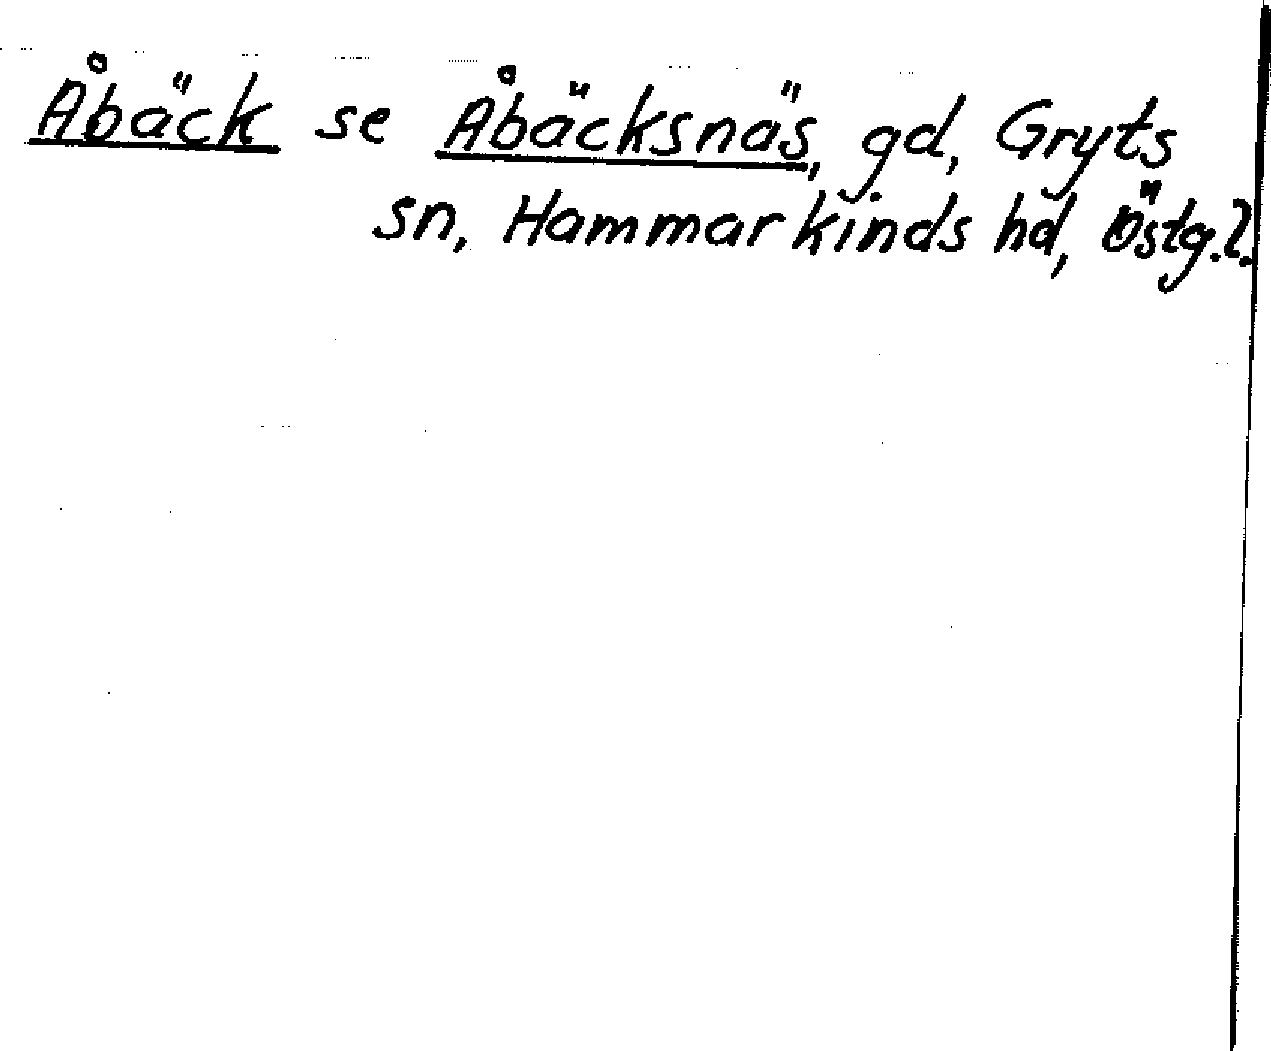 Åbäck se Åbäcksnäs, gd, Gryts
sn, Hammarkinds hd, Östg.l.